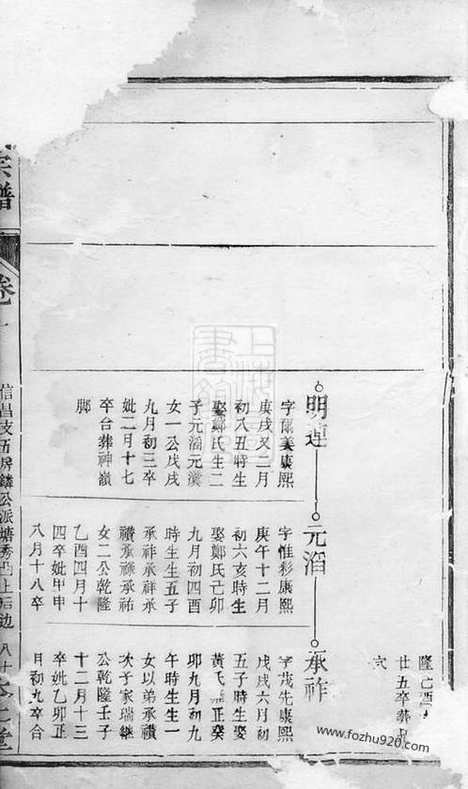 隆己酉
廿五卒葬
明連
字爾美康熙
庚戌又二月
初八丑時生
娶鄭氏生二
子元滔元漢
女一公戊戌
九月初三卒
妣二月十七
卒合葬神嶺
脚
元滔
字惟彩康熙
庚午十二月
初六亥時生
娶鄭氏己卯
九月初四酉
時生生五子
承祚承祿承
禩承承祐
女二公乾隆
乙酉四月十
四卒妣甲申
八月十八卒
承祚
字茂先康熙
戊戌六月初
五子時生娶
黃氏正癸
卯九月初九
午時生生一
女以弟承禩
次子家瑞繼
公乾隆壬子
十二月十三
卒妣乙卯正
月初九卒合
宗譜
卷
信昌技五房鏻公派塘秀
上后边
八十
www.fozhu920.com